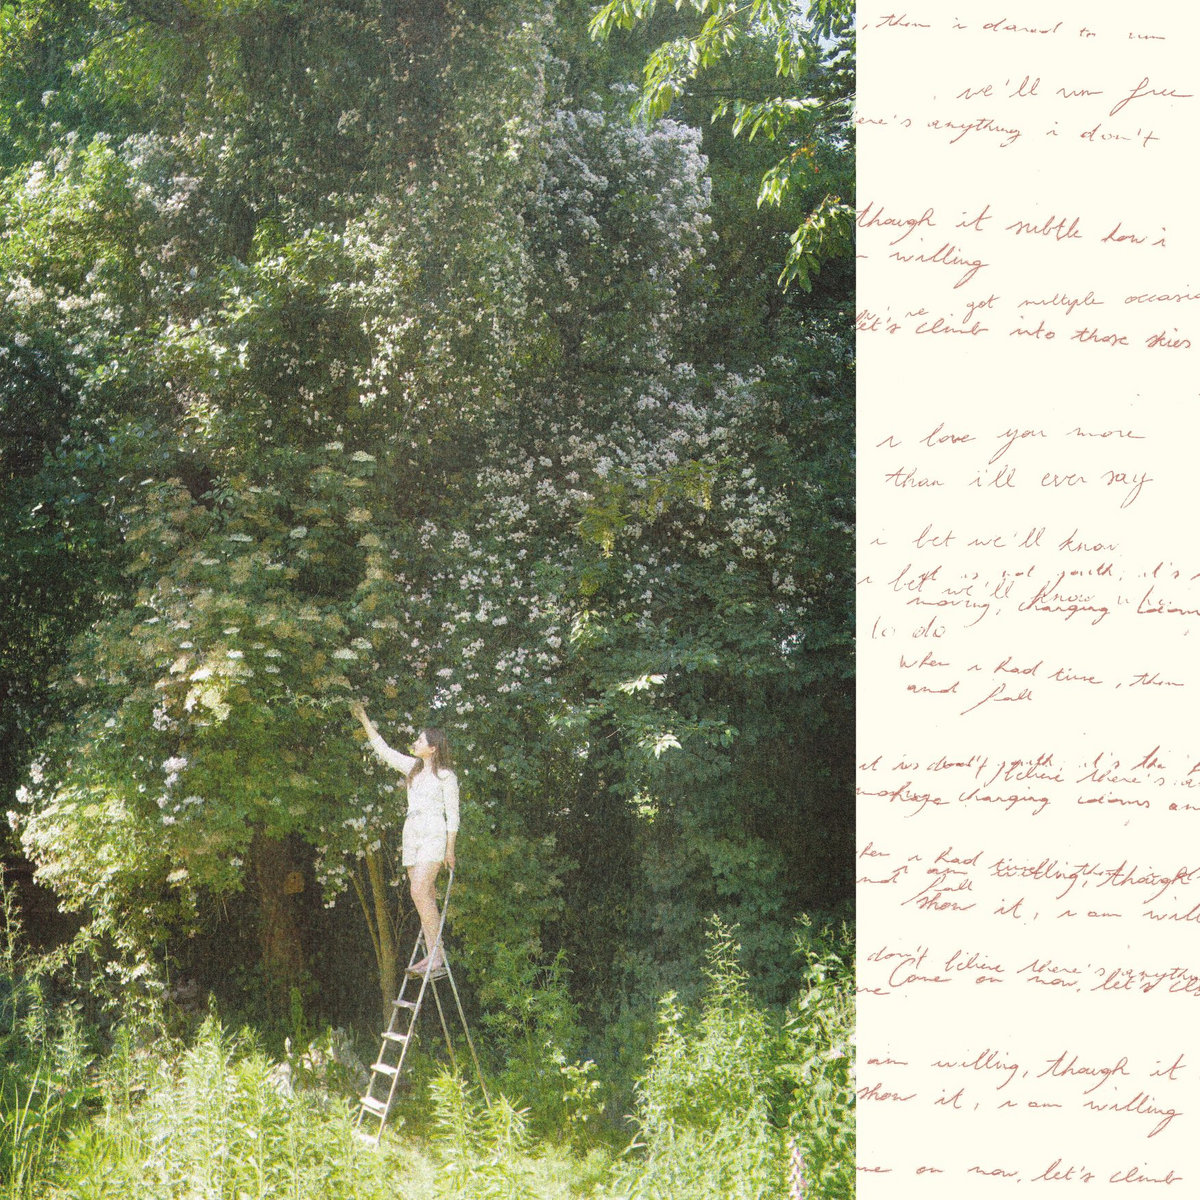 , then i dared to run
we'll run free
ere's anything i don't
though it subtle how i
willing
we've got multiple occasio
let's climb into those skies
i love you more
than i'll ever say
i bet we'll know
it is not youth, it's
i bet we'll know
moving, changing
to do
When i had time, then
and fall
it is youth, it's the
believe there's a
changing idioms an
hen i had time
i am willing, though
and fall
show it, i am will
don't believe there's anythin
Come on now, let's cli
me
am willing, though it
show it, i am willing
me on now, let's climb